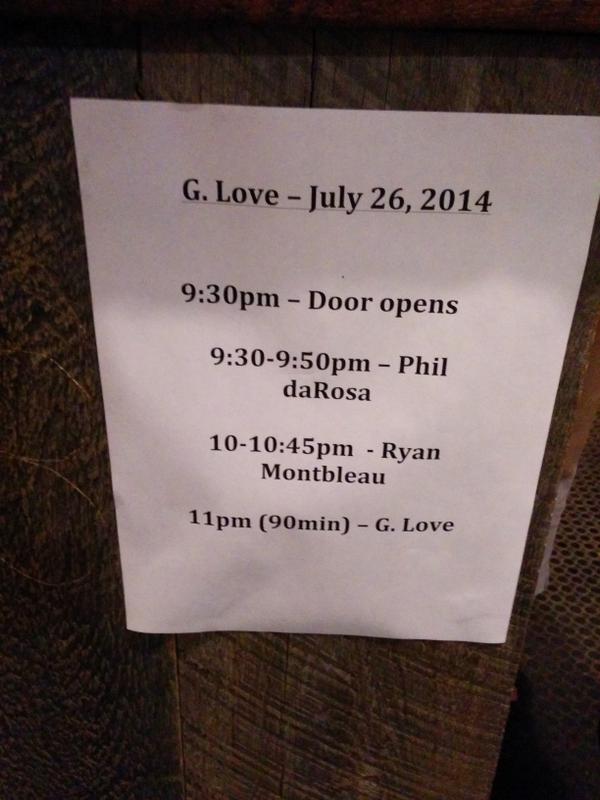 G. Love – July 26, 2014
9:30pm – Door opens
9:30-9:50pm – Phil
daRosa
10-10:45pm - Ryan
Montbleau
11pm (90min) – G. Love